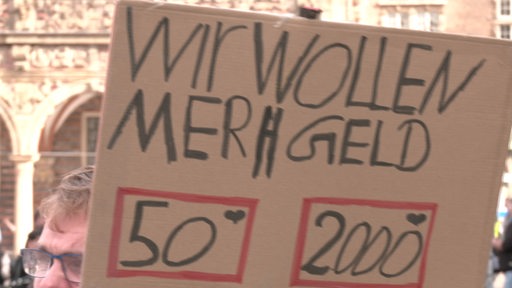 WIR WOLLEN
MERH GELD
50 ♥ 2000 ♥